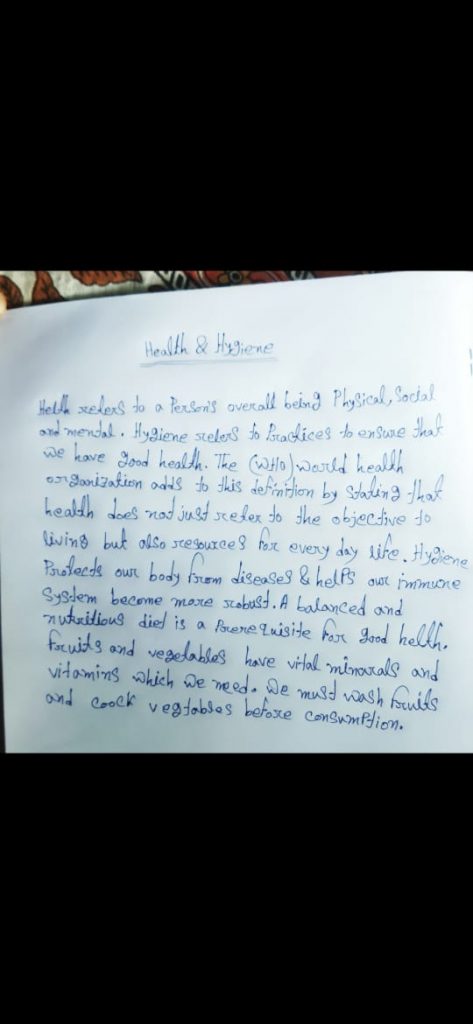 Health & Hygiene
Helth refers to a Person's overall being Physical, Social
and mental. Hygiene refers to Practices to ensure that
we have good health. The (WHO) world health
organization adds to this definition by stating that
health does not just refer to the objective to
living but also resources for every day life. Hygiene
Protects our body from diseases & helps our immune
System become more robust. A balanced and
nutritious diet is a Prerequisite for good helth.
fruits and vegetables have vital minarals and
vitamins which we need. We must wash fruits
and coock vegtables before consumption.